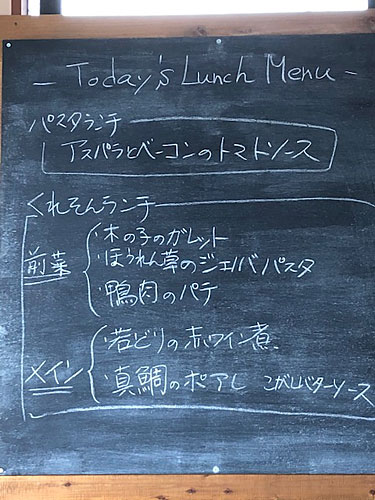 - Today's Lunch Menu -
パスタランチ
アスパラとベーコンのトマトソース
くれそんランチ
前菜
・木の子のガレット
・ほうれん草のジェノバパスタ
・鴨肉のパテ
メイン
・若どりの赤ワイン煮
・真鯛のポアレ こがしバターソース